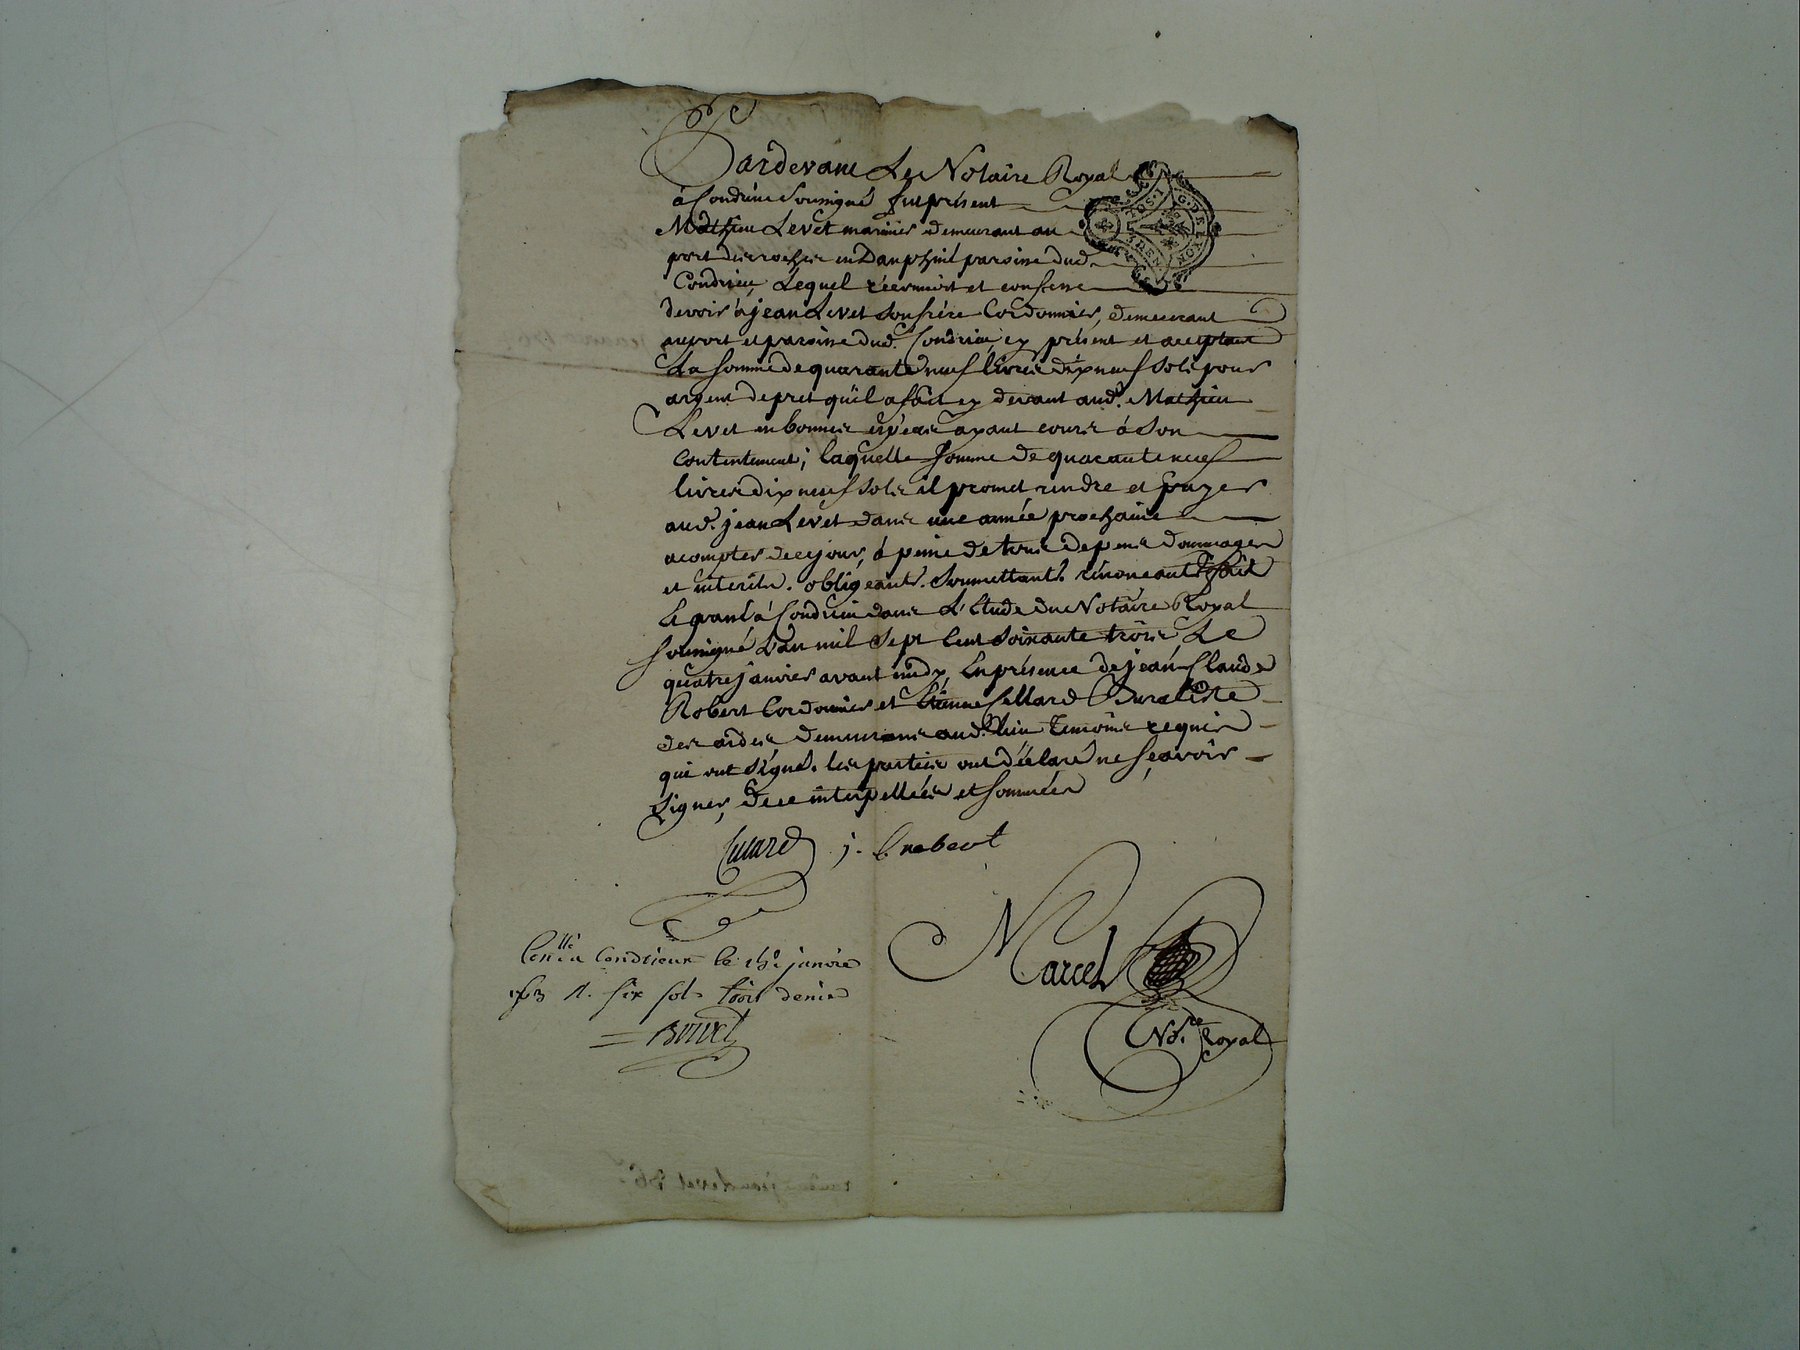 Pardevant Le Notaire Royal
à Condrieu soussigné fut présent
Mathieu Levet marinier demeurant au
port des roches en Dauphiné paroisse dud.
Condrieu, Lequel reconnoit et confesse
devoir à jean Levet son frère Cordonnier, demeurant
au port et paroisse dud. Condrieu, cy présent et acceptant
La somme de quarante neuf livres dix neuf sols pour
argent de pret qu'il a fait cy devant aud. Mathieu
Levet en bonnes espèces ayant cours à son
contentement; laquelle somme de quarante neuf
livres dix neuf sols il promet rendre et payer
aud. jean Levet dans une année prochaine
a compter de ce jour, à peine de tous depens dommages
et interets. obligeants. soumettants. renonceants. fait
et passé à Condrieu dans L'Etude du Notaire Royal
soussigné L'an mil sept cent soixante trois, Le
quatre janvier avant midy, En présence de jean Claude
Robert Cordonnier et Etienne Cellard Buraliste
des aides demeurans aud. lieu temoins requis
qui ont signé. les parties ont déclaré ne sçavoir
signer, de ce interpellées et sommées
j. C robert
Marcel
Nore. Royal
Conllé a Condrieux le janvier
six sols trois deniers
Bouvet